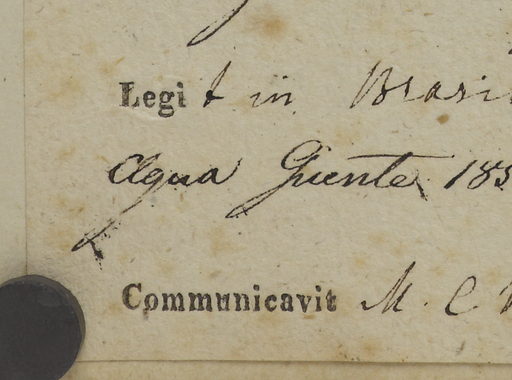 Legit in Brasi
Agua Quente 185
Communicavit M. C